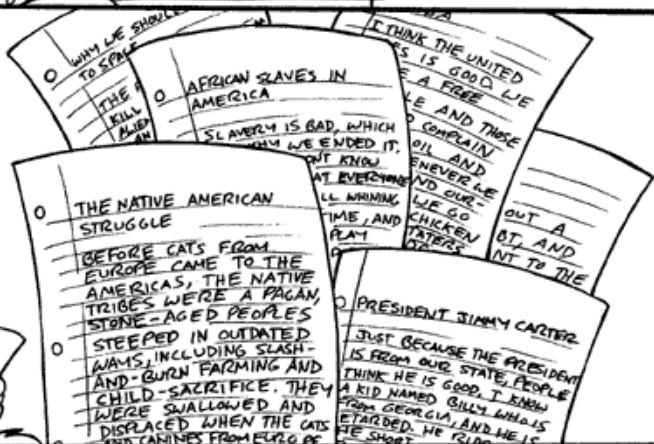 WHY WE SHOULD
TO SPACE
THE
KILL
ALIEN
AN
AFRICAN SLAVES IN
AMERICA
SLAVERY IS BAD, WHICH
WHY WE ENDED IT.
KNOW
AT EVERYONE
LL WHINING
TIME, AND
PLAY
I THINK THE UNITED
ES IS GOOD WE
E A FREE
LE AND THOSE
COMPLAIN
OIL AND
ENEVER WE
ND OUR-
WE GO
CHICKEN
TATERS
OUT A
BT, AND
NT TO THE
THE NATIVE AMERICAN
STRUGGLE
BEFORE CATS FROM
EUROPE CAME TO THE
AMERICAS, THE NATIVE
TRIBES WERE A PAGAN,
STONE-AGED PEOPLES
STEEPED IN OUTDATED
WAYS, INCLUDING SLASH-
AND-BURN FARMING AND
CHILD-SACRIFICE. THEY
WERE SWALLOWED AND
DISPLACED WHEN THE CATS
AND CANINES FROM EUROPE
PRESIDENT JIMMY CARTER
JUST BECAUSE THE PRESIDENT
IS FROM OUR STATE, PEOPLE
THINK HE IS GOOD, I KNOW
A KID NAMED BILLY WHO IS
FROM GEORGIA, AND HE IS
ETARDED. HE RIDES
HE SHORT